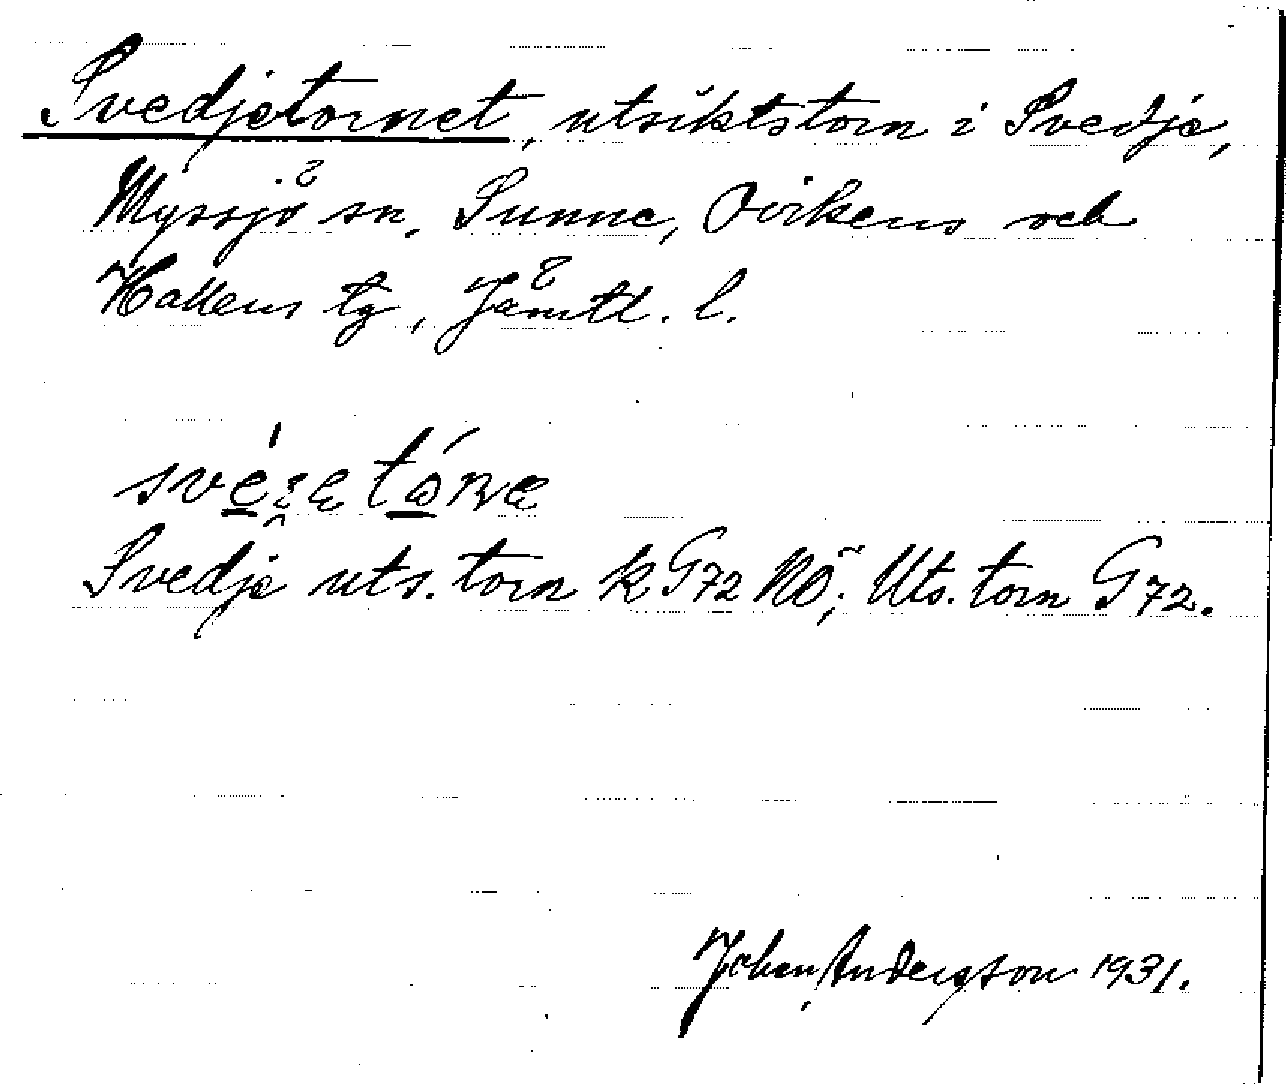 Svedjetornet, utsiktstorn i Svedje,
Myssjö sn. Sunne, Ovikens och
Hallens tg, Jämtl. l.
Svedje uts. torn k G72 NÖ; Uts. torn G72.
Johan Andersson 1931.